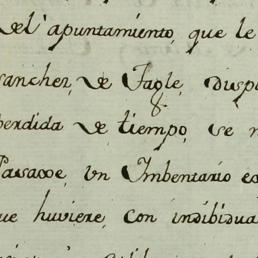 del apuntamiento, que le
Sanchez, de Tagle, disp
perdida de tiempo, se
Pasase, un Imbentario
que huviere, con indibidua